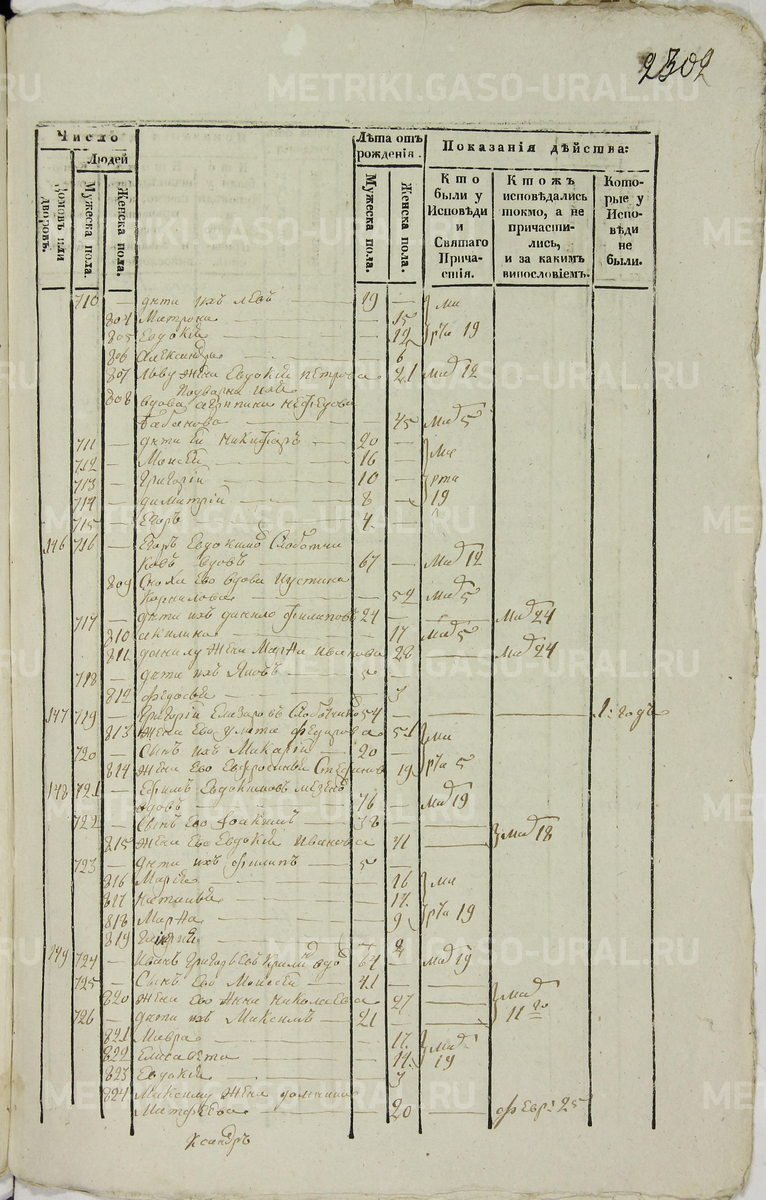 2302
Число
Людей
Домовъ или дворовъ.
Мужеска пола.
Женска пола.
Лѣта отъ рожденія.
Мужеска пола.
Женска пола.
Показанія дѣйства:
Кто были у Исповѣди и Святаго Причастія.
Ктожъ исповѣдались токмо, а не причастились, и за какимъ винословіемъ.
Которые у Исповѣди не были.
710 — дѣти ихъ левъ — 19 —
804 Матрона — 15 мар
805 Евдокія — 12 рта 19
806 Александра — 6
807 льву жена Евдокія петрова 21 мар 12
808
вдова агрипина нефедова
45 мар 5
711 — дѣти ей никифоръ — 20 — мар
712 — Моисей — 16
713 — григорій — 10 — рта
714 — димитрій — 8 — 19
715 — Егоръ — 4
146 716 — Егоръ Евдокимовъ Слободчи
ковъ вдовъ — 67 — мар 12
809 Сноха Его вдова иустина
Корнилова — 52 мар 5
717 — дѣти ихъ данило филиповъ 24 — мар 24
810 акилина — 17 мар 5
811 данилу жена Марѳа иванова 28 — мар 24
718 — дѣти ихъ Яковъ — 5 —
812 федосья — 3
147 719 — григорій Елазаровъ Слободчиковъ 54 — 1: годъ
813 жена Его улита федорова 51 мар
720 — Сынъ ихъ Макарій — 20 —
814 жена Его Евфросинья 19 рта 5
148 721 — Ефимъ Евдокимовъ
вдовъ — 76 — мар 19
722 — Сынъ Его Іоакимъ — 38 —
815 жена Его Евдокія Иванова 41 — мар 18
723 — дѣти ихъ филипъ — 5 —
816 Марія — 16 мар
817 наталья — 11
818 Марѳа — 9 рта 19
819 — 2
149 724 — григорьевъ вдов 64 — мар 19
725 — Сынъ Его Моисей — 41 —
820 жена Его Анна николаева 47 — мар
726 — дѣти ихъ Максимъ — 21 11 го
821 Мавра — 17 мар
822 Елисавета — 14 19
823 Евдокія — 3
824 Максиму жена
Матфеева — 20 — февр: 25
ксандръ
METRIKI.GASO-URAL.RU